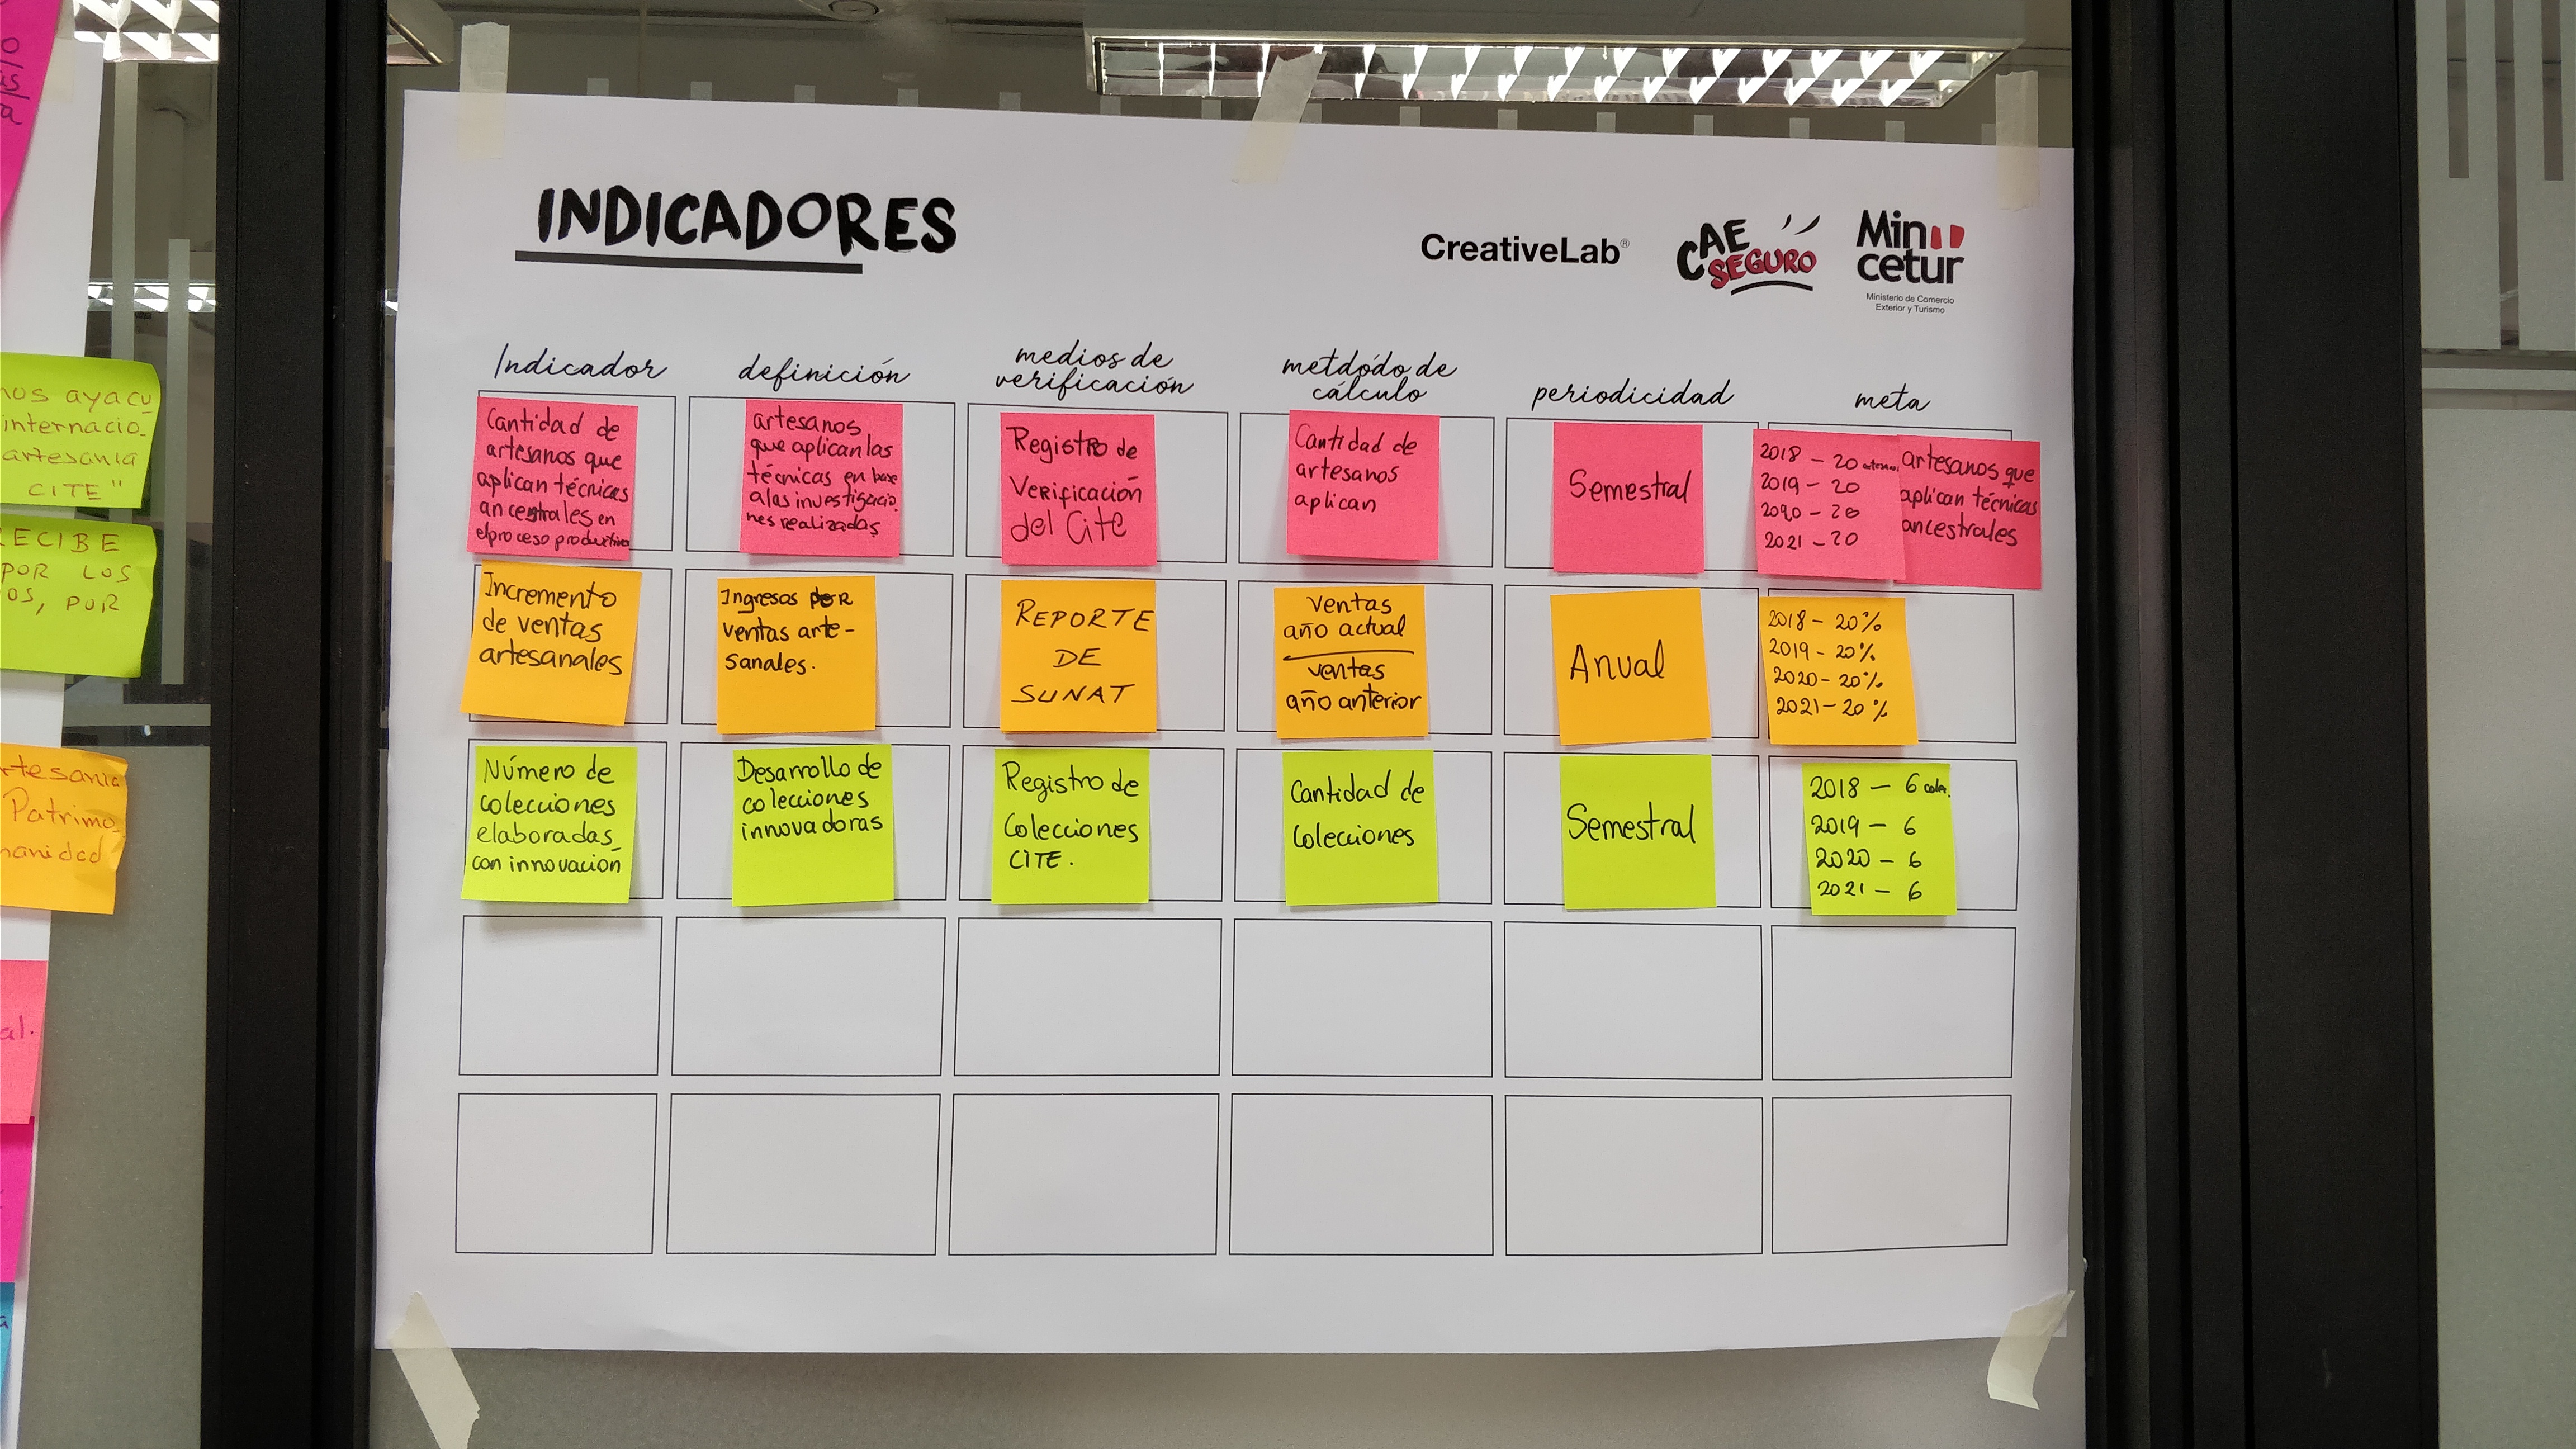 INDICADORES
CreativeLab®
CAE
SEGURO
Min
cetur
Ministerio de Comercio
Exterior y Turismo
Indicador
definición
medios de
verificación
metdódo de
cálculo
periodicidad
meta
Cantidad de
artesanos que
aplican técnicas
ancestrales en
el proceso productivo
artesanos
que aplican las
técnicas en base
a las investigacio
nes realizadas
Registro de
Verificación
del Cite
Cantidad de
artesanos
aplican
Semestral
2018 - 20 artesanos
2019 - 20
2020 - 20
2021 - 20
artesanos que
aplican técnicas
ancestrales
Incremento
de ventas
artesanales
Ingresos por
ventas arte-
sanales.
REPORTE
DE
SUNAT
ventas
año actual
ventas
año anterior
Anual
2018 - 20%
2019 - 20%
2020 - 20%
2021 - 20%
Número de
colecciones
elaboradas
con innovación
Desarrollo de
colecciones
innovadoras
Registro de
Colecciones
CITE.
Cantidad de
Colecciones
Semestral
2018 - 6 colec.
2019 - 6
2020 - 6
2021 - 6
nos ayacu
internacio-
artesanía
CITE"
ECIBE
POR LOS
OS, POR
rtesanía
Patrimo
anidad
al.